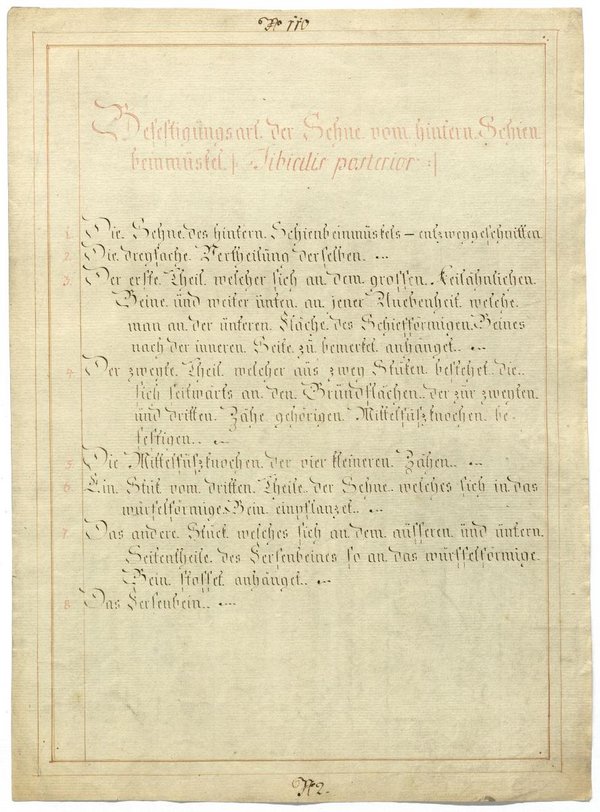 No 110
Befestigungsart der Sehne vom hintern Schien
beinmüskel |: Tibialis posterior :|
1. Die Sehne des hintern Schienbeinmüskels – entzweygeschnitten
2. Die dreyfache Vertheilüng derselben.
3. Der erste Theil welcher sich an dem grossen Keilähnlichen
Beine ünd weiter ünten an jener Unebenheit welche
man an der ünteren Fläche des Schiefförmigen Beines
nach der inneren Seite zü bemerket anhänget..
4. Der zweyte Theil welcher aus zwey Stüken bestehet die
sich seitwärts an den Gründflächen der zür zweyten
ünd dritten Zähe gehörigen Mittelfüszknochen be-
festigen..
5. Die Mittelfüszknochen der vier kleineren Zähen..
6. Ein Stük vom dritten Theile der Sehne welches sich in das
würfelförmige Bein einpflanzet..
7. Das andere Stück welches sich an dem äüsseren ünd üntern
Seitentheile des Fersenbeines so an das würffelförmige
Bein stosset anhänget..
8. Das Fersenbein..
N 2.